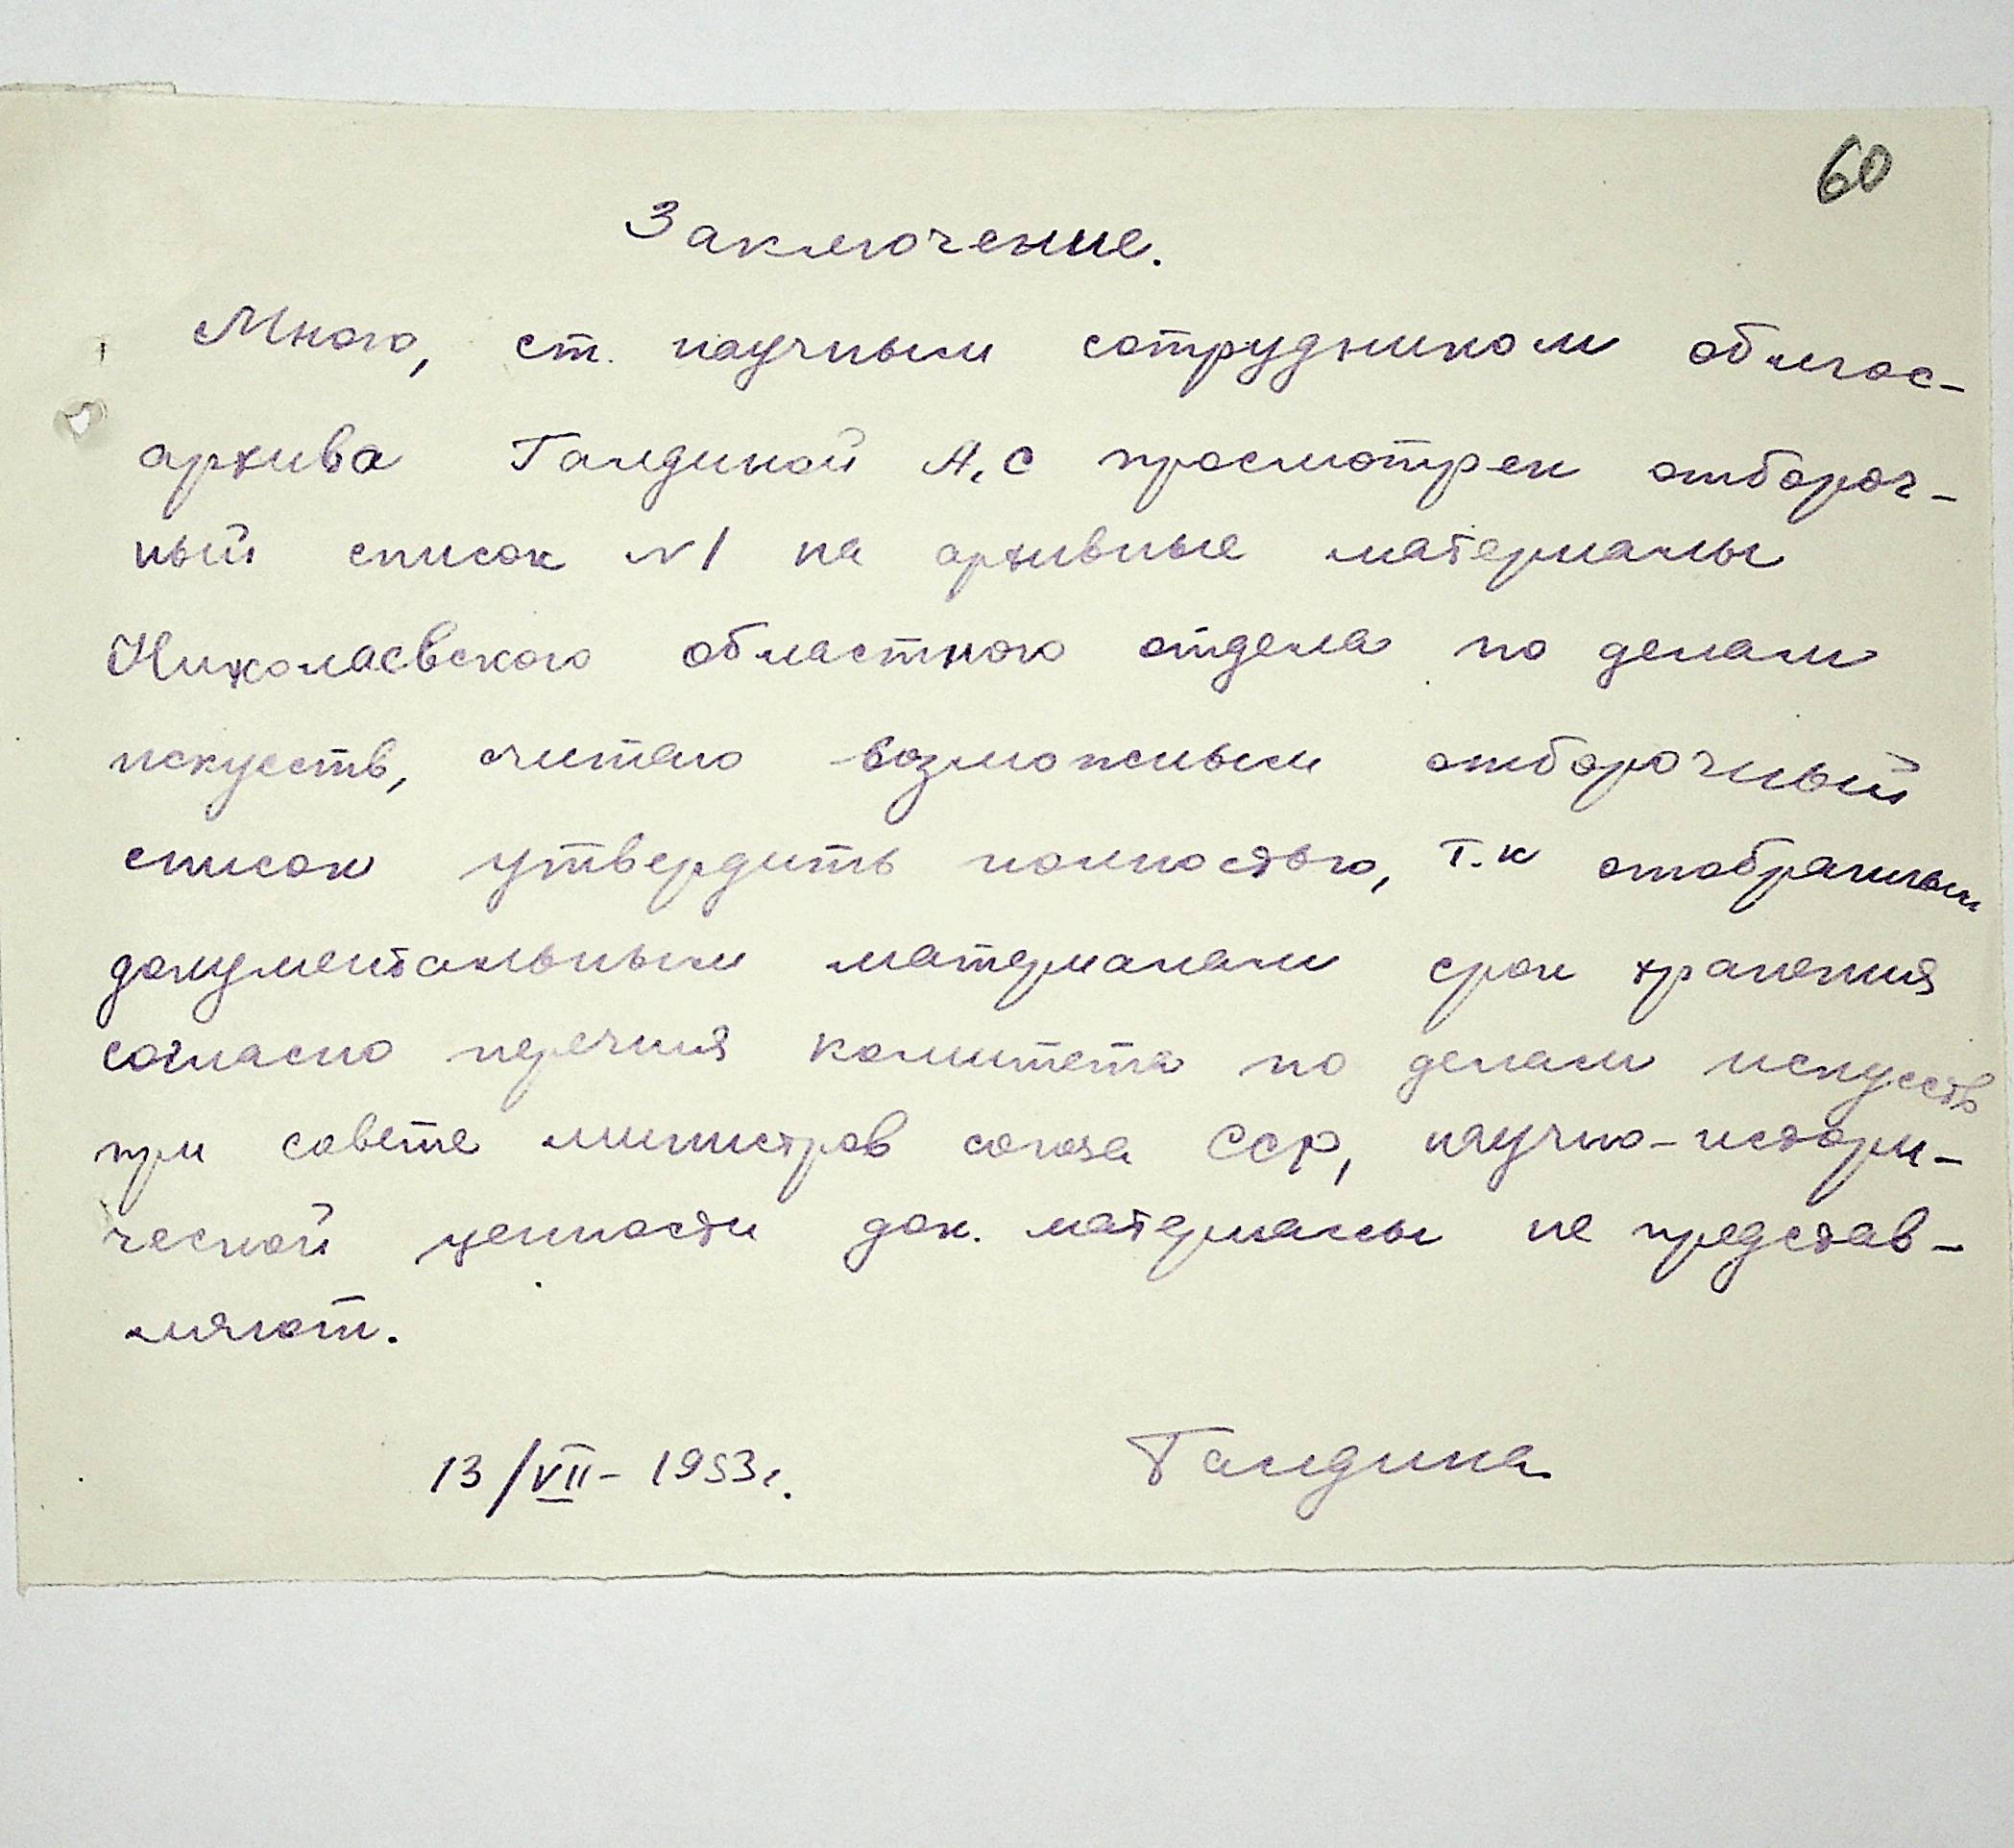 60
Заключение.
Мною, ст. научным сотрудником облгос-
архива Галдиной А.С просмотрен отбороч-
ный список №1 на архивные материалы
Николаевского областного отдела по делам
искуств, считаю возможным отборочный
список утвердить полностью, т.к отобранным
документальным материалам срок хранения
согласно перечня комитета по делам искусств
при совете министров союза ССР, научно-истори-
ческой ценности док. материалы не представ-
ляют.
13/VII-1953г. Галдина